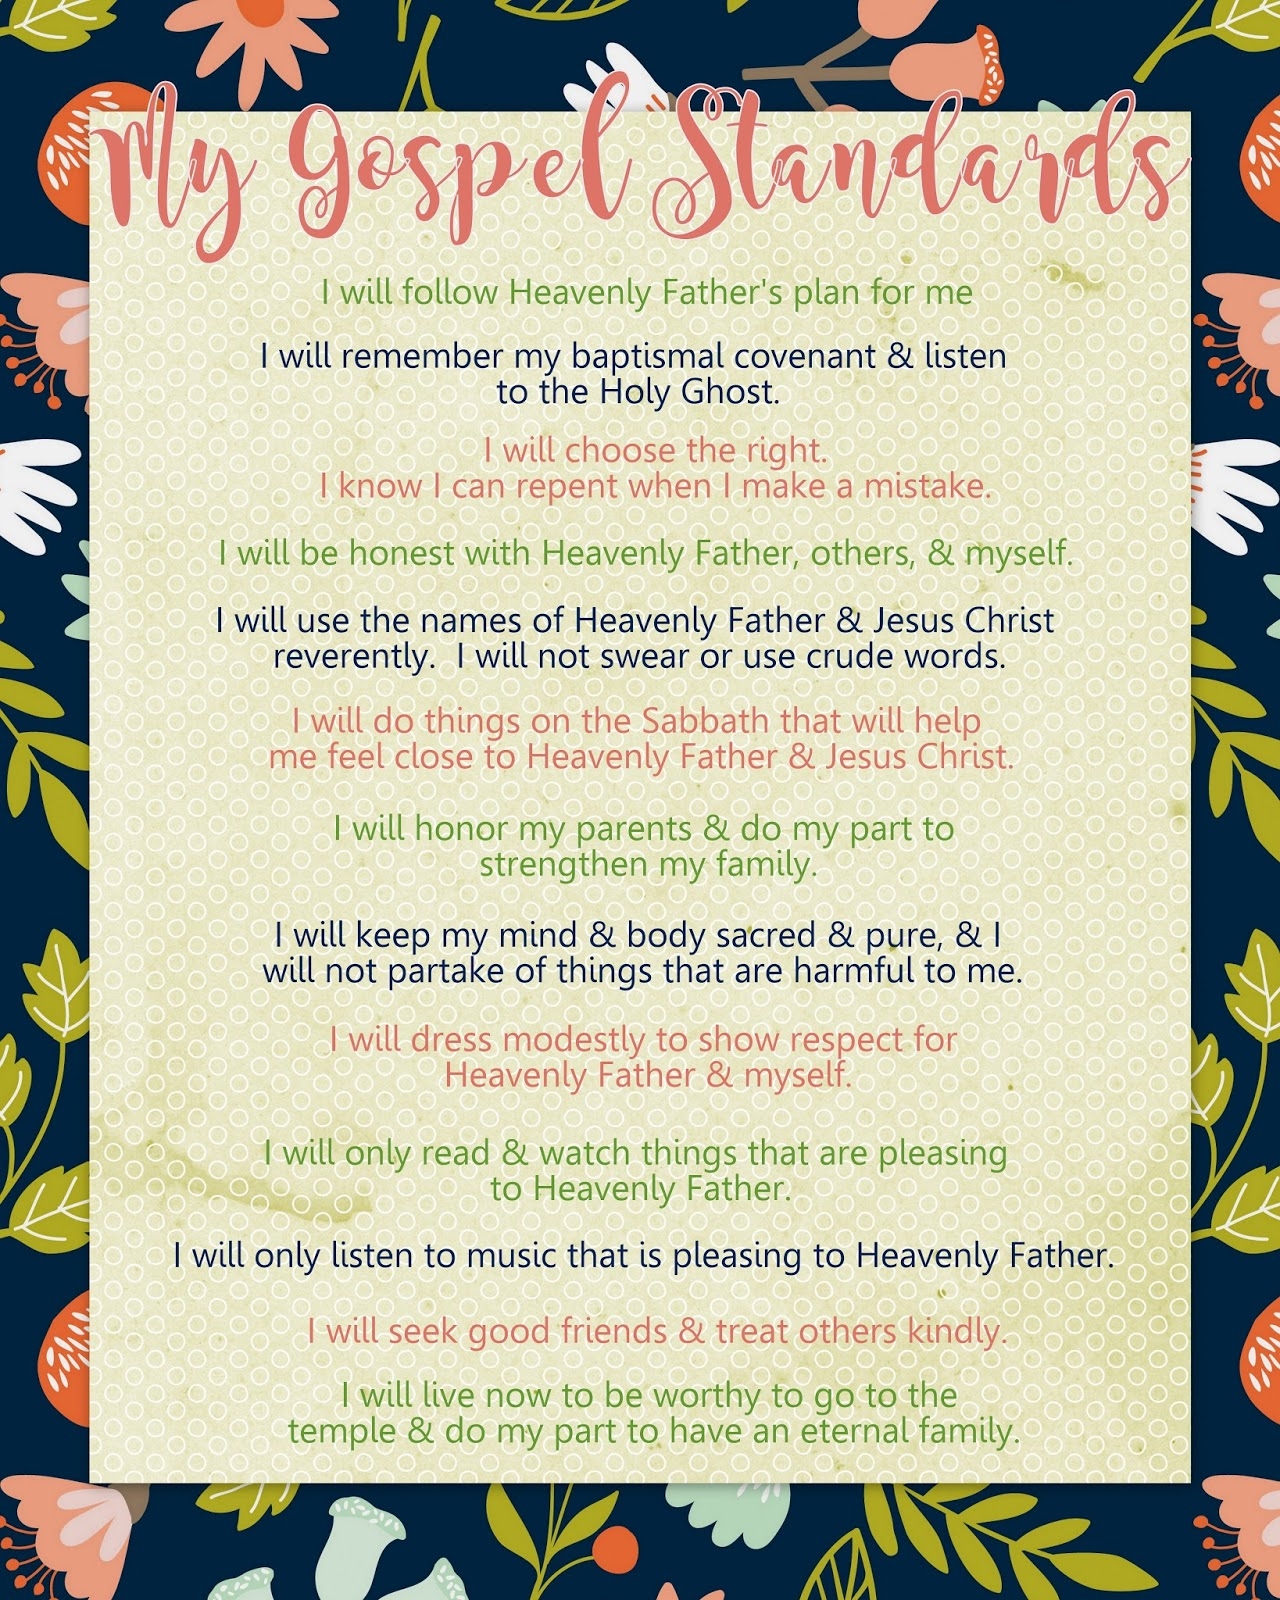 My Gospel Standards
I will follow Heavenly Father's plan for me
I will remember my baptismal covenant & listen
to the Holy Ghost.
I will choose the right.
I know I can repent when I make a mistake.
I will be honest with Heavenly Father, others, & myself.
I will use the names of Heavenly Father & Jesus Christ
reverently.  I will not swear or use crude words.
I will do things on the Sabbath that will help
me feel close to Heavenly Father & Jesus Christ.
I will honor my parents & do my part to
strengthen my family.
I will keep my mind & body sacred & pure, & I
will not partake of things that are harmful to me.
I will dress modestly to show respect for
Heavenly Father & myself.
I will only read & watch things that are pleasing
to Heavenly Father.
I will only listen to music that is pleasing to Heavenly Father.
I will seek good friends & treat others kindly.
I will live now to be worthy to go to the
temple & do my part to have an eternal family.